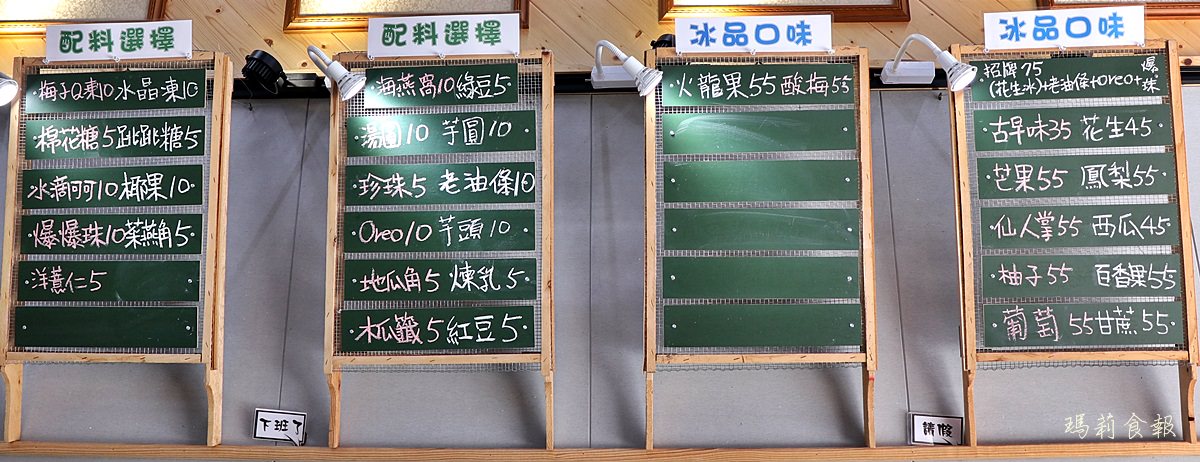 配料選擇
·梅子Q凍10水晶凍10
·棉花糖5跳跳糖5·
水滴啊可10椰果10·
·爆爆珠10菜燕角5·
·洋薏仁5
配料選擇
·海燕窩10綠豆5·
湯圓10 芋圓10·
·珍珠5 老油條10
·Oreo10芋頭10·
·地瓜角5 煉乳5·
·木瓜籤5紅豆5·
冰品口味
·火龍果55酸梅55
冰品口味
招牌75
(花生冰)+老油條+Oreo+爆珠
·古早味35 花生45·
·芒果55 鳳梨55·
·仙人掌55 西瓜45·
·柚子55 百香果55
·葡萄55甘蔗55·
下班了
請假
瑪莉食報